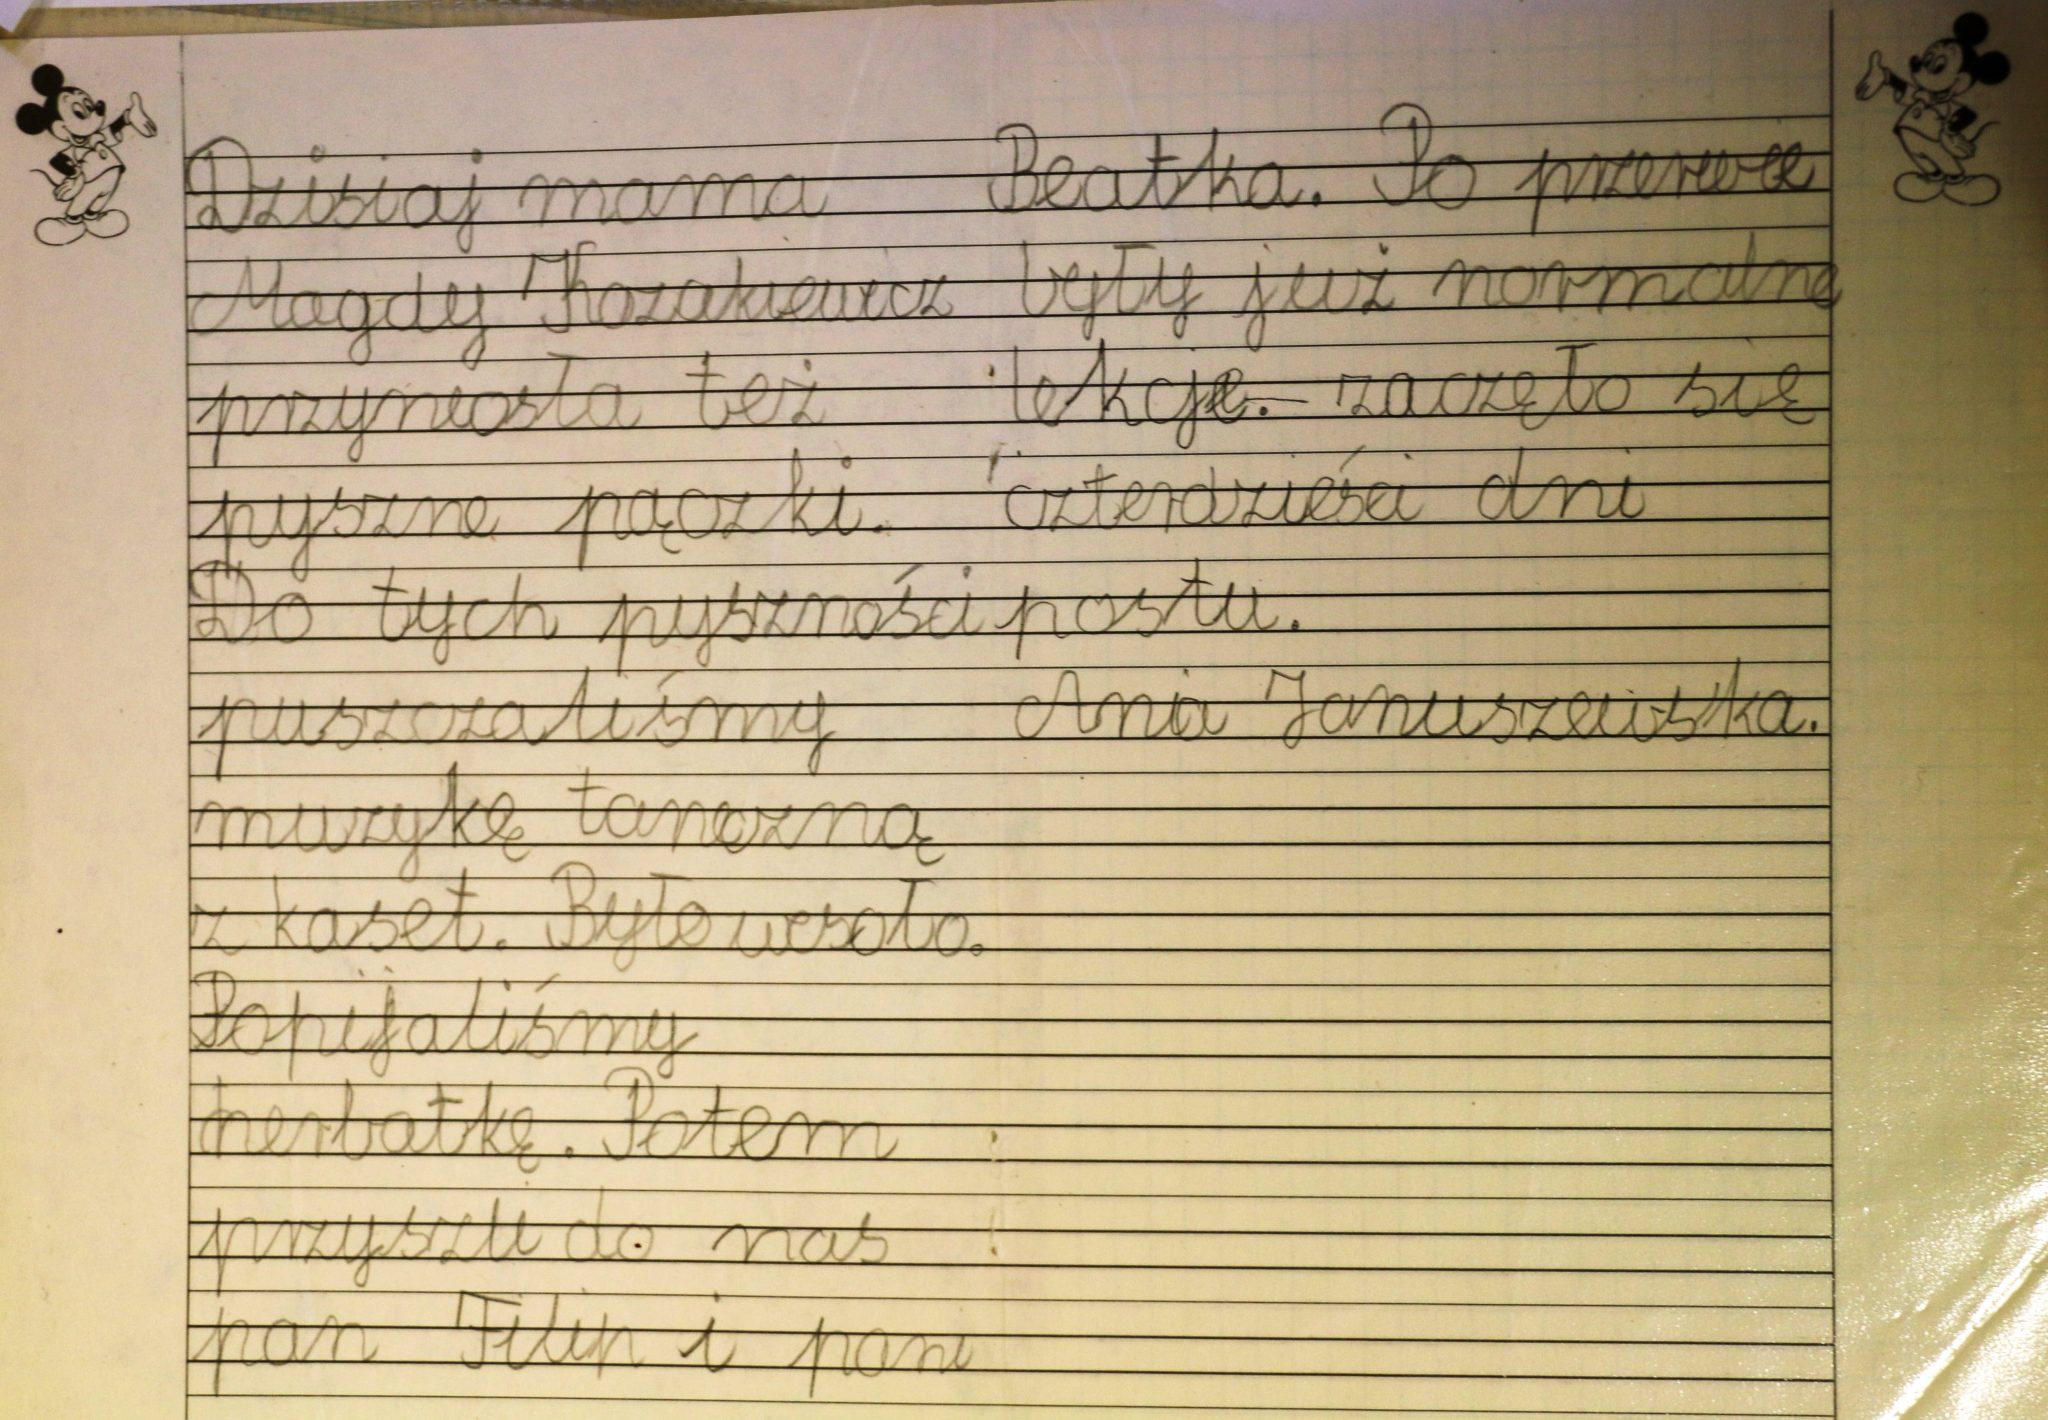 Dzisiaj mama
Magdy Kozakiewicz
przyniosła też
pyszne pączki.
Do tych pyszności
puszczaliśmy
muzykę taneczną
z kaset. Było wesoło.
Popijaliśmy
herbatkę. Potem
przyszli do nas
pan Filip i pani
Beatka. Po przerwie
były już normalne
lekcje. zaczęło się
czterdzieści dni
postu.
Ania Januszewska.